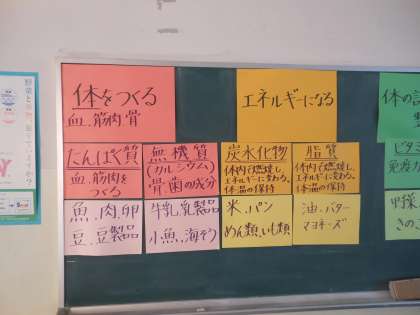 体をつくる
血、筋肉、骨
エネルギーになる
体の
たんぱく質
血、筋肉を
つくる
無機質
(カルシウム)
骨、歯の成分
炭水化物
体内で燃焼し、
エネルギーに変わる。
体温の保持
脂質
体内で燃焼し、
エネルギーに変わる。
体温の保持
ビタミ
魚、肉、卵
豆、豆製品
牛乳、乳製品
小魚、海そう
米、パン
めん類、いも類
油、バター
マヨネーズ
きのこ